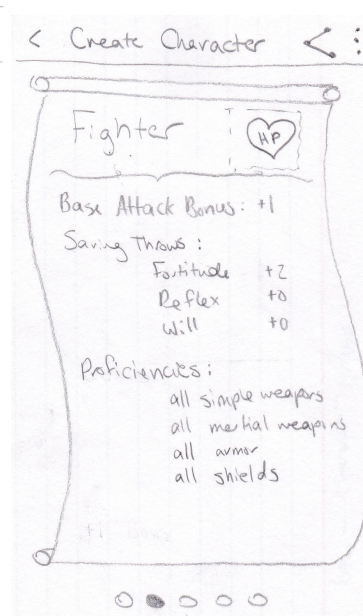 < Create Character
Fighter
HP
Base Attack Bonus: +1
Saving Throws:
Fortitude +2
Reflex +0
Will +0
Proficiencies:
all simple weapons
all martial weapons
all armor
all shields